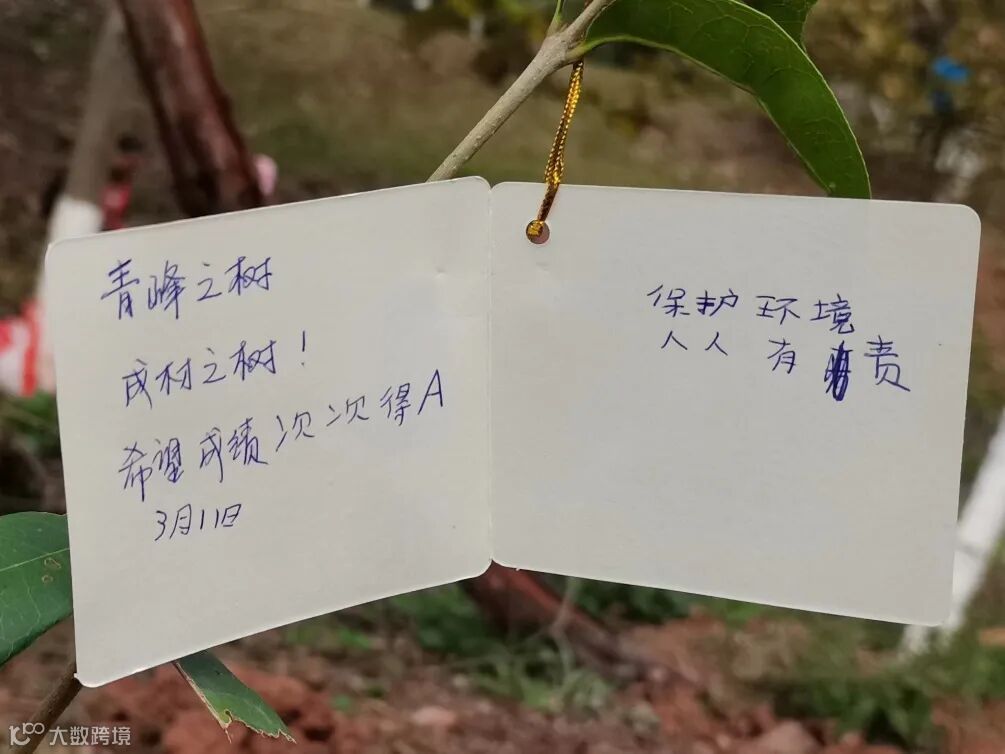 青峰之树
成材之树！
希望成绩次次得A
3月11日
保护环境
人人有责
大数跨境